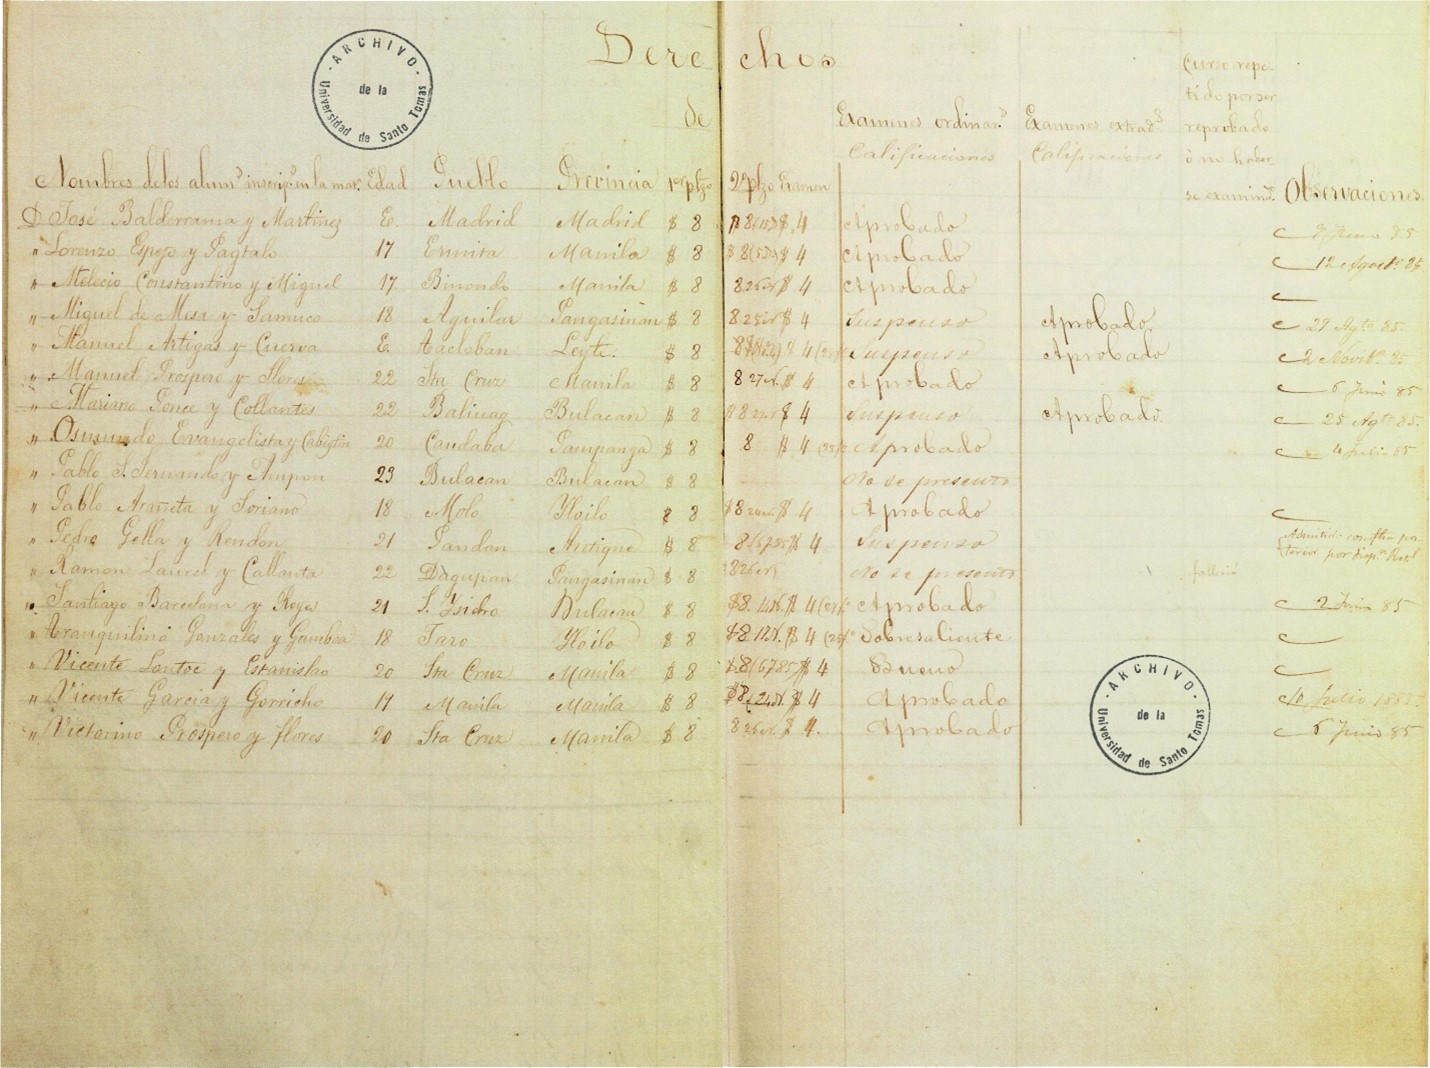 ARCHIVO de la Universidad de Santo Tomas
Derechos
de
Examenes ordinar.s Calificaciones
Examenes extrad.s Calificaciones
Curso repetido por ser reprobado ó no haber se examind.
Nombres de los alum.s inscrip.s en la mat. Edad Pueblo Provincia 1er plzo 2º plzo Examen Observaciones.
D José Balderrama y Martinez E. Madrid Madrid $ 8 $ 4 Aprobado
" Lorenzo Espejo y Pagtalo 17 Ermita Manila $ 8 $ 8 $ 4 Aprobado 12 Agost. 85
" Melecio Constantino y Miguel 17 Binondo Manila $ 8 8 $ 4 Aprobado
" Miguel de Mesa y Samuco 18 Aguilar Pangasinan $ 8 8 $ 4 Suspenso Aprobado. 29 Agto 85.
" Manuel Artigas y Cuerva E. Tacloban Leyte. $ 8 4 Suspenso Aprobado 2 Novbe 85
" Manuel Prospero y Flores 22 Sta Cruz Manila $ 8 8 $ 4 Aprobado 6 Junio 85
" Mariano Ponce y Collantes 22 Baliuag Bulacan $ 8 $ 8 $ 4 Suspenso Aprobado. 25 Agto 85.
" Evangelista y 20 Candaba Pampanga $ 8 8 $ 4 Aprobado 4 Julio 85
" Pablo S. Fernando y 23 Bulacan Bulacan $ 8 No se presento
" Pablo Araneta y Soriano 18 Molo Yloilo $ 8 $ 8 $ 4 Aprobado
" Pedro Gella y Rendon 21 Pandan Antique $ 8 8 $ 4 Suspenso
" Ramon Laurel y Callanta 22 Dagupan Pangasinan $ 8 8 No se presento falleció
" Santiago Barcelona y Reyes 21 S. Ysidro Bulacan $ 8 $ 8 $ 4 Aprobado 2 Junio 85
" Tranquilino Gonzales y Gamboa 18 Jaro Yloilo $ 8 $ 8 $ 4 Sobresaliente
" Vicente Santoc y Estanislao 20 Sta Cruz Manila $ 8 $ 8 $ 4 Bueno
" Vicente Garcia y Gorricho 17 Manila Manila $ 8 $ 8 $ 4 Aprobado 10 Julio 1885
" Victorino Prospero y flores 20 Sta Cruz Manila $ 8 8 $ 4. Aprobado 6 Junio 85
ARCHIVO de la Universidad de Santo Tomas